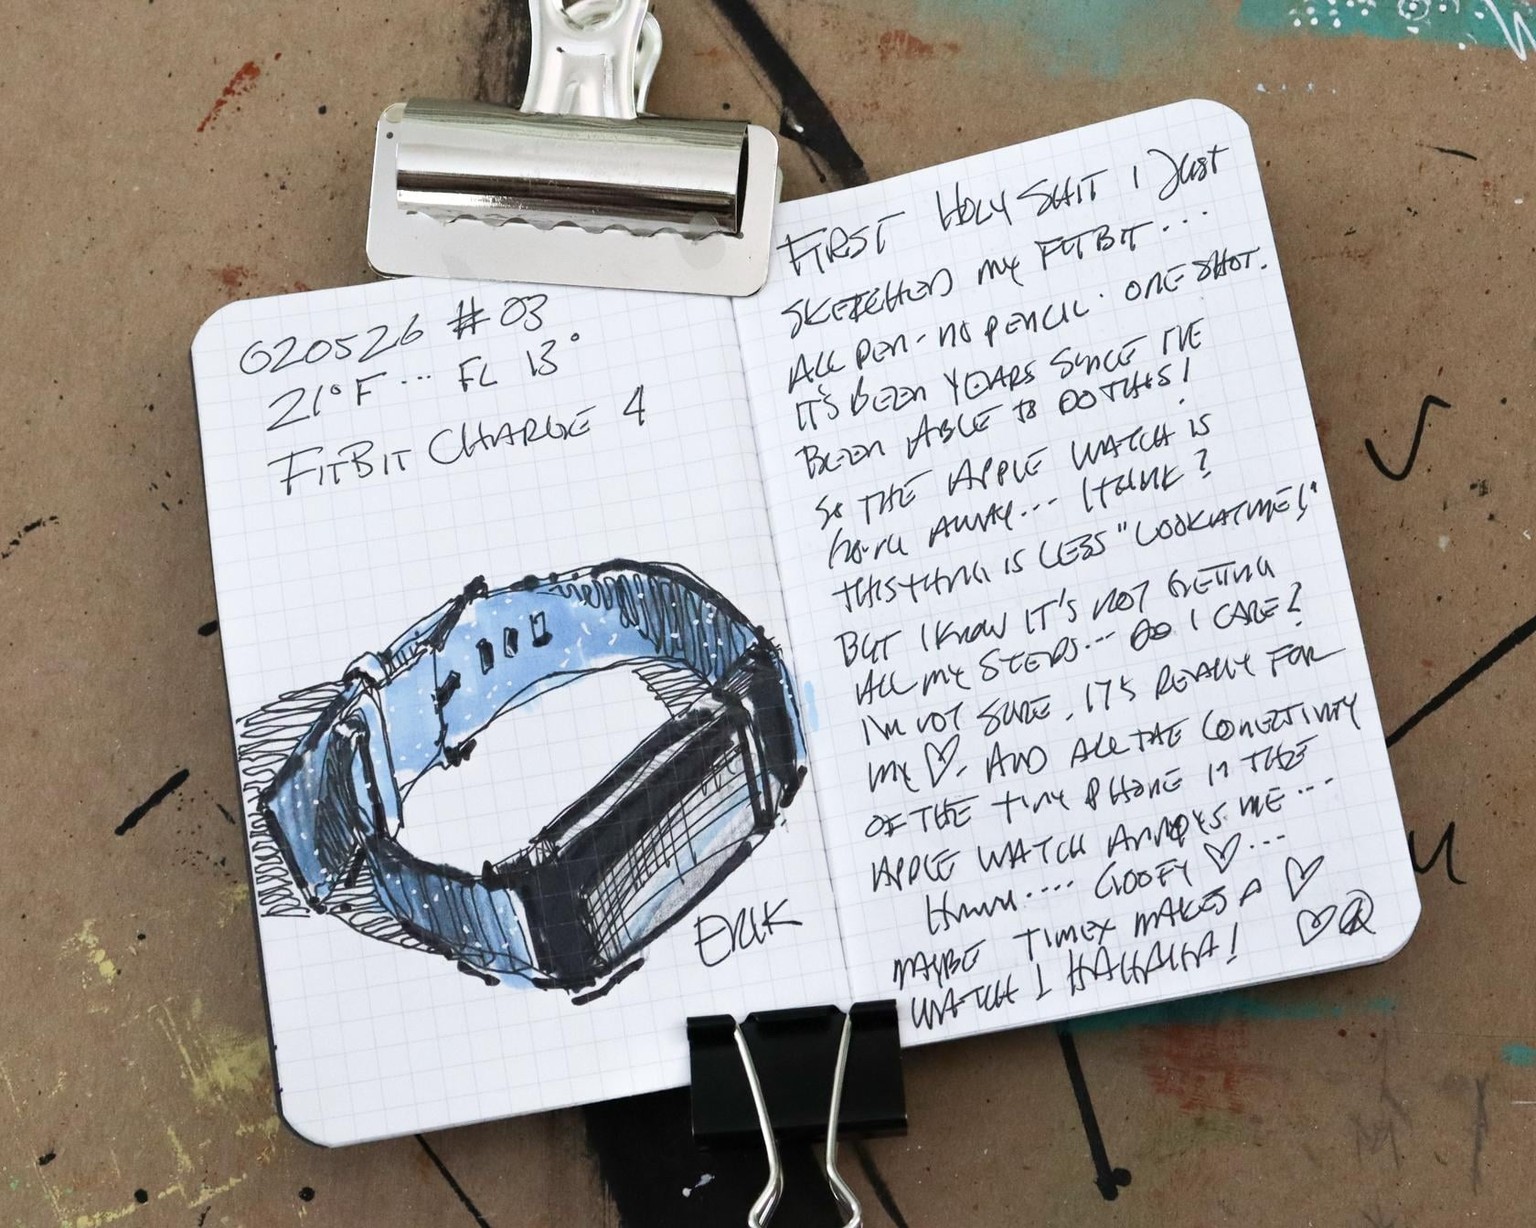 020526 #03
21°F... FL 13°
FITBIT CHARGE 4
ERIK
FIRST HOLY SHIT I JUST
SKETCHED MY FITBIT...
ALL PEN - NO PENCIL. ONE SHOT.
IT'S BEEN YEARS SINCE I'VE
BEEN ABLE TO DO THIS!
SO THE APPLE WATCH IS
GOING AWAY... I THINK?
THIS THING IS LESS "LOOK AT ME!"
BUT I KNOW IT'S NOT GETTING
ALL MY STEPS... DO I CARE?
I'M NOT SURE. IT'S REALLY FOR
MY ♡. AND ALL THE CONECTIVITY
OF THE TINY PHONE IN THE
APPLE WATCH ANNOYS ME...
HMMM.... GOOFY ♡...
MAYBE TIMEX MAKES A ♡
WATCH I HAHAHA! ♡